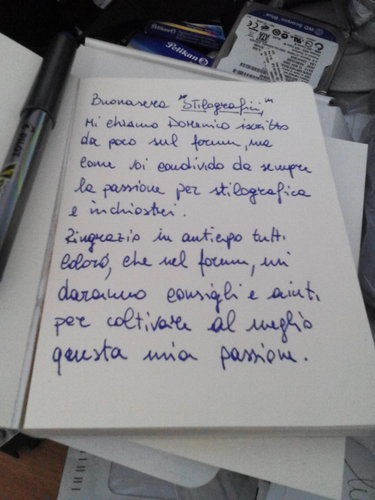 Pelikan
Pelikan
WD Scorpio Blue
PILOT
Buonasera "Stilografici",
Mi chiamo Domenico iscritto
da poco sul forum, ma
come voi condivido da sempre
la passione per stilografica
e inchiostri.
Ringrazio in anticipo tutti
coloro, che nel forum, mi
daranno consigli e aiuti
per coltivare al meglio
questa mia passione.